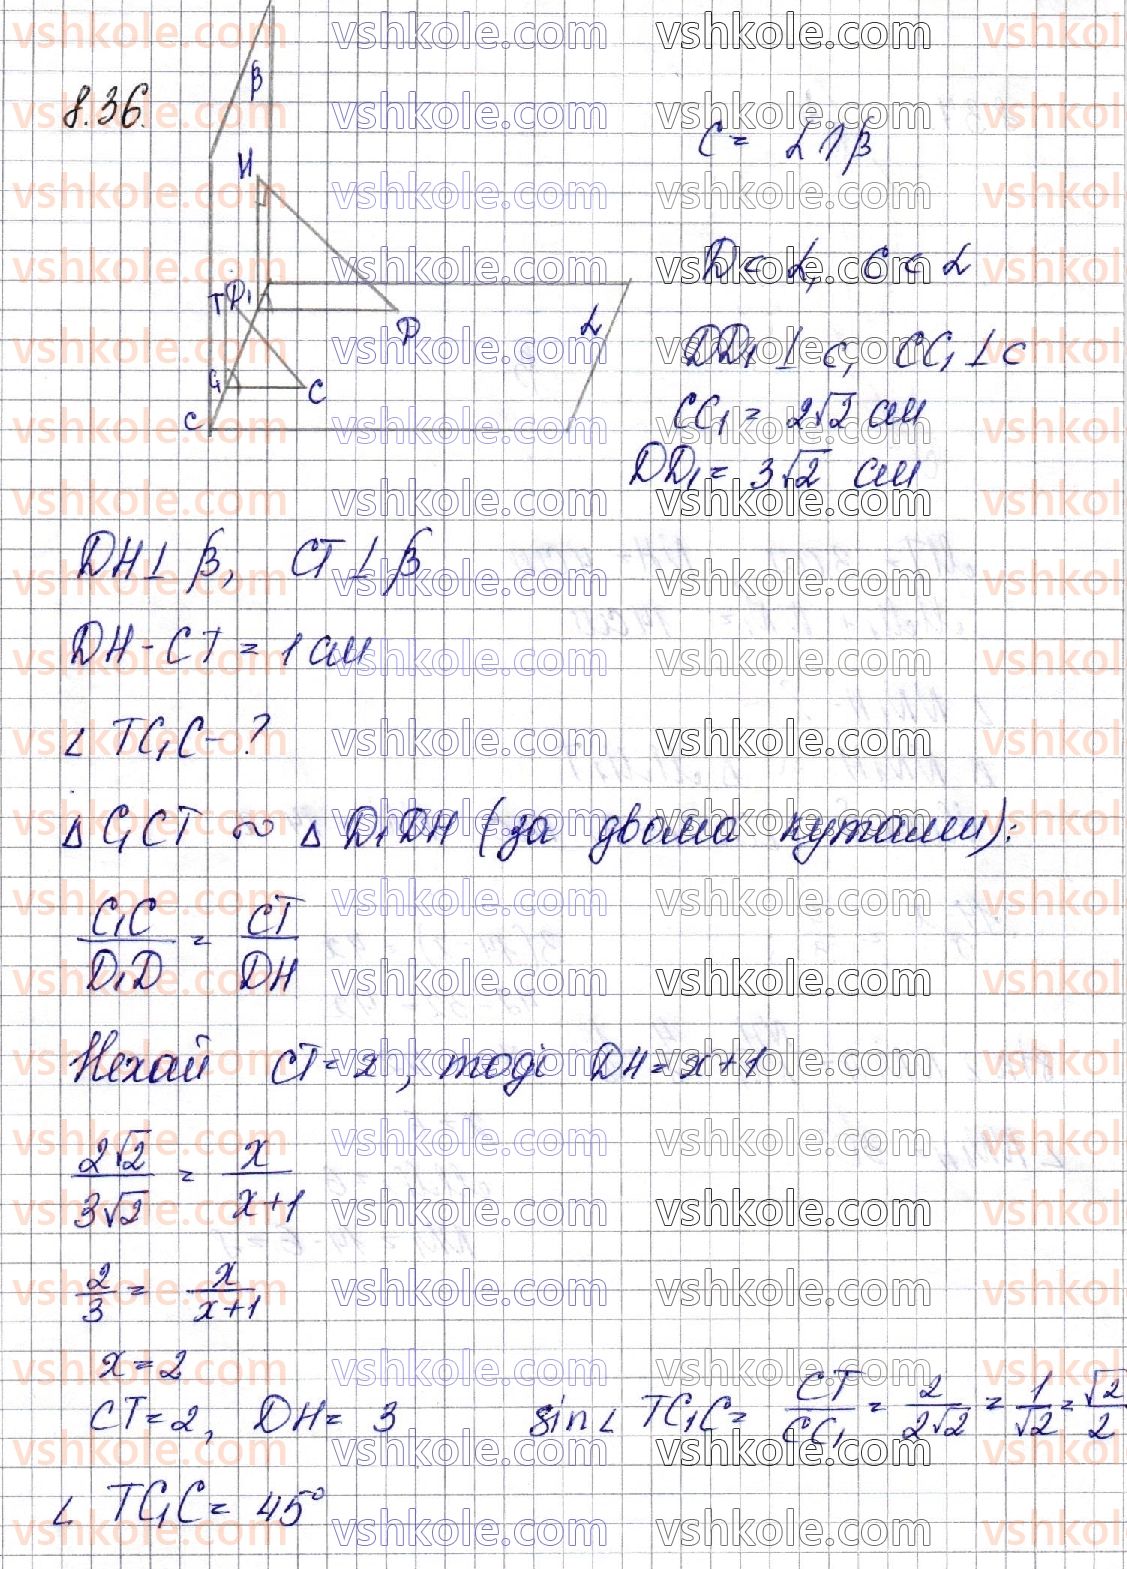 8.36.
β
H
T D₁
D
α
C₁
C
c
c = α ∩ β
D ⊂ α, C ⊂ α
DD₁ ⊥ c, CC₁ ⊥ c
CC₁ = 2√2 см
DD₁ = 3√2 см
DH ⊥ β, CT ⊥ β
DH - CT = 1 см
∠ TC₁C - ?
Δ C₁CT ∾ Δ D₁DH (за двома кутами):
C₁C / D₁D = CT / DH
Нехай CT = x, тоді DH = x+1
2√2 / 3√2 = x / x+1
2/3 = x / x+1
x = 2
CT = 2, DH = 3 sin ∠ TC₁C = CT / CC₁ = 2 / 2√2 = 1 / √2 = √2 / 2
∠ TC₁C = 45°
vshkole.com